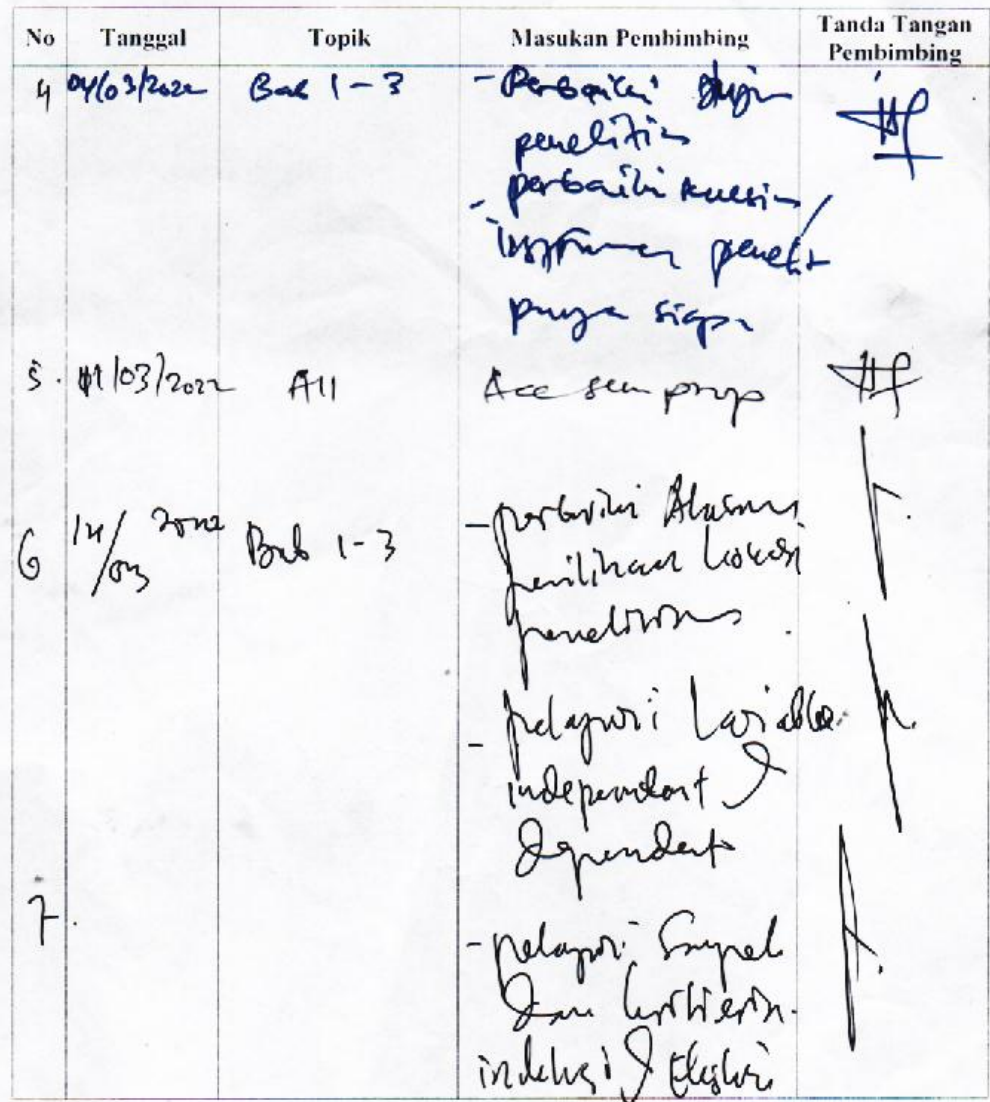 No Tanggal Topik Masukan Pembimbing Tanda Tangan Pembimbing
4 04/03/2022 Bab 1-3 - Perbaiki
penelitian
- perbaiki
instrumen
punya siapa
5. 11/03/2022 All Acc sem prop
6 14/03 2022 Bab 1-3 - perbaiki Alasan
pemilihan Lokasi
penelitian
- pelajari Variable
independent &
dependent
7. - pelajari Sampel
dan kriteria
inklusi & Eksklusi